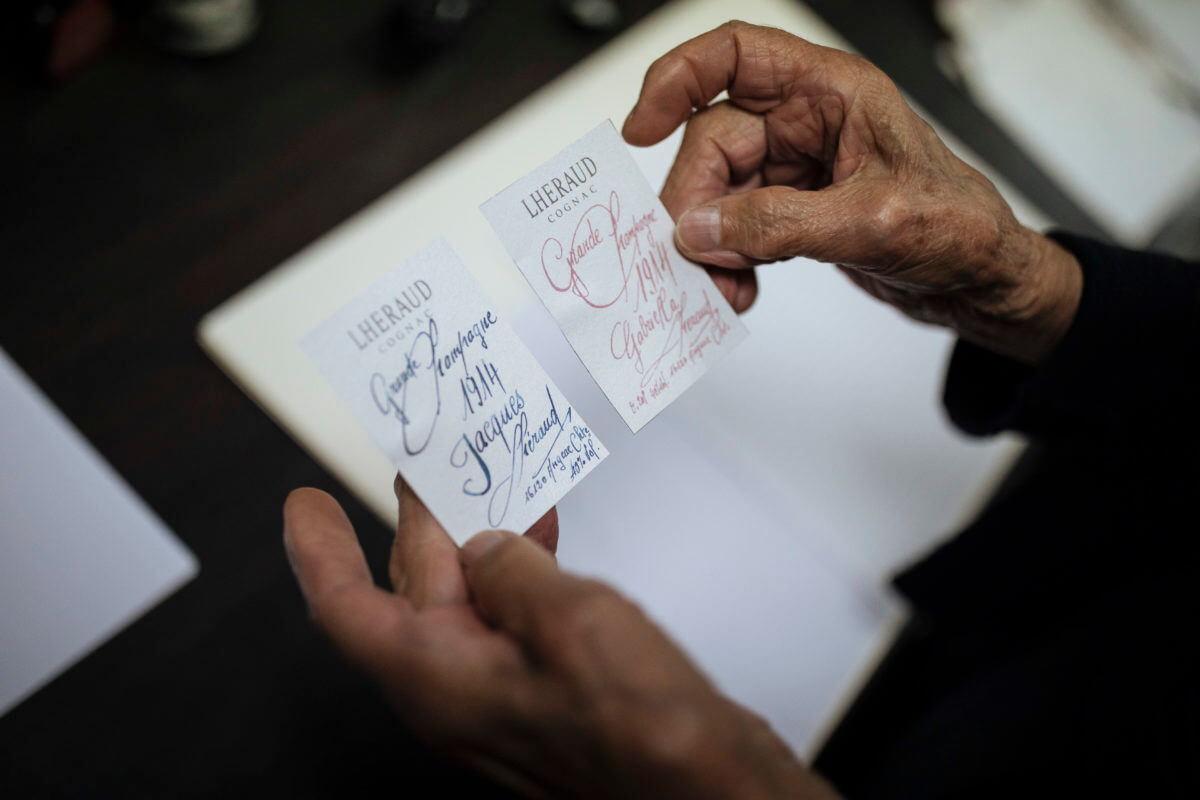 LHERAUD
COGNAC
Grande Champagne
1914
Jacques
Lhéraud
16120 Angeac Chte
49% Vol.
LHERAUD
COGNAC
Grande Champagne
1914
Gabriella
Lheraud
16120 Angeac Chte